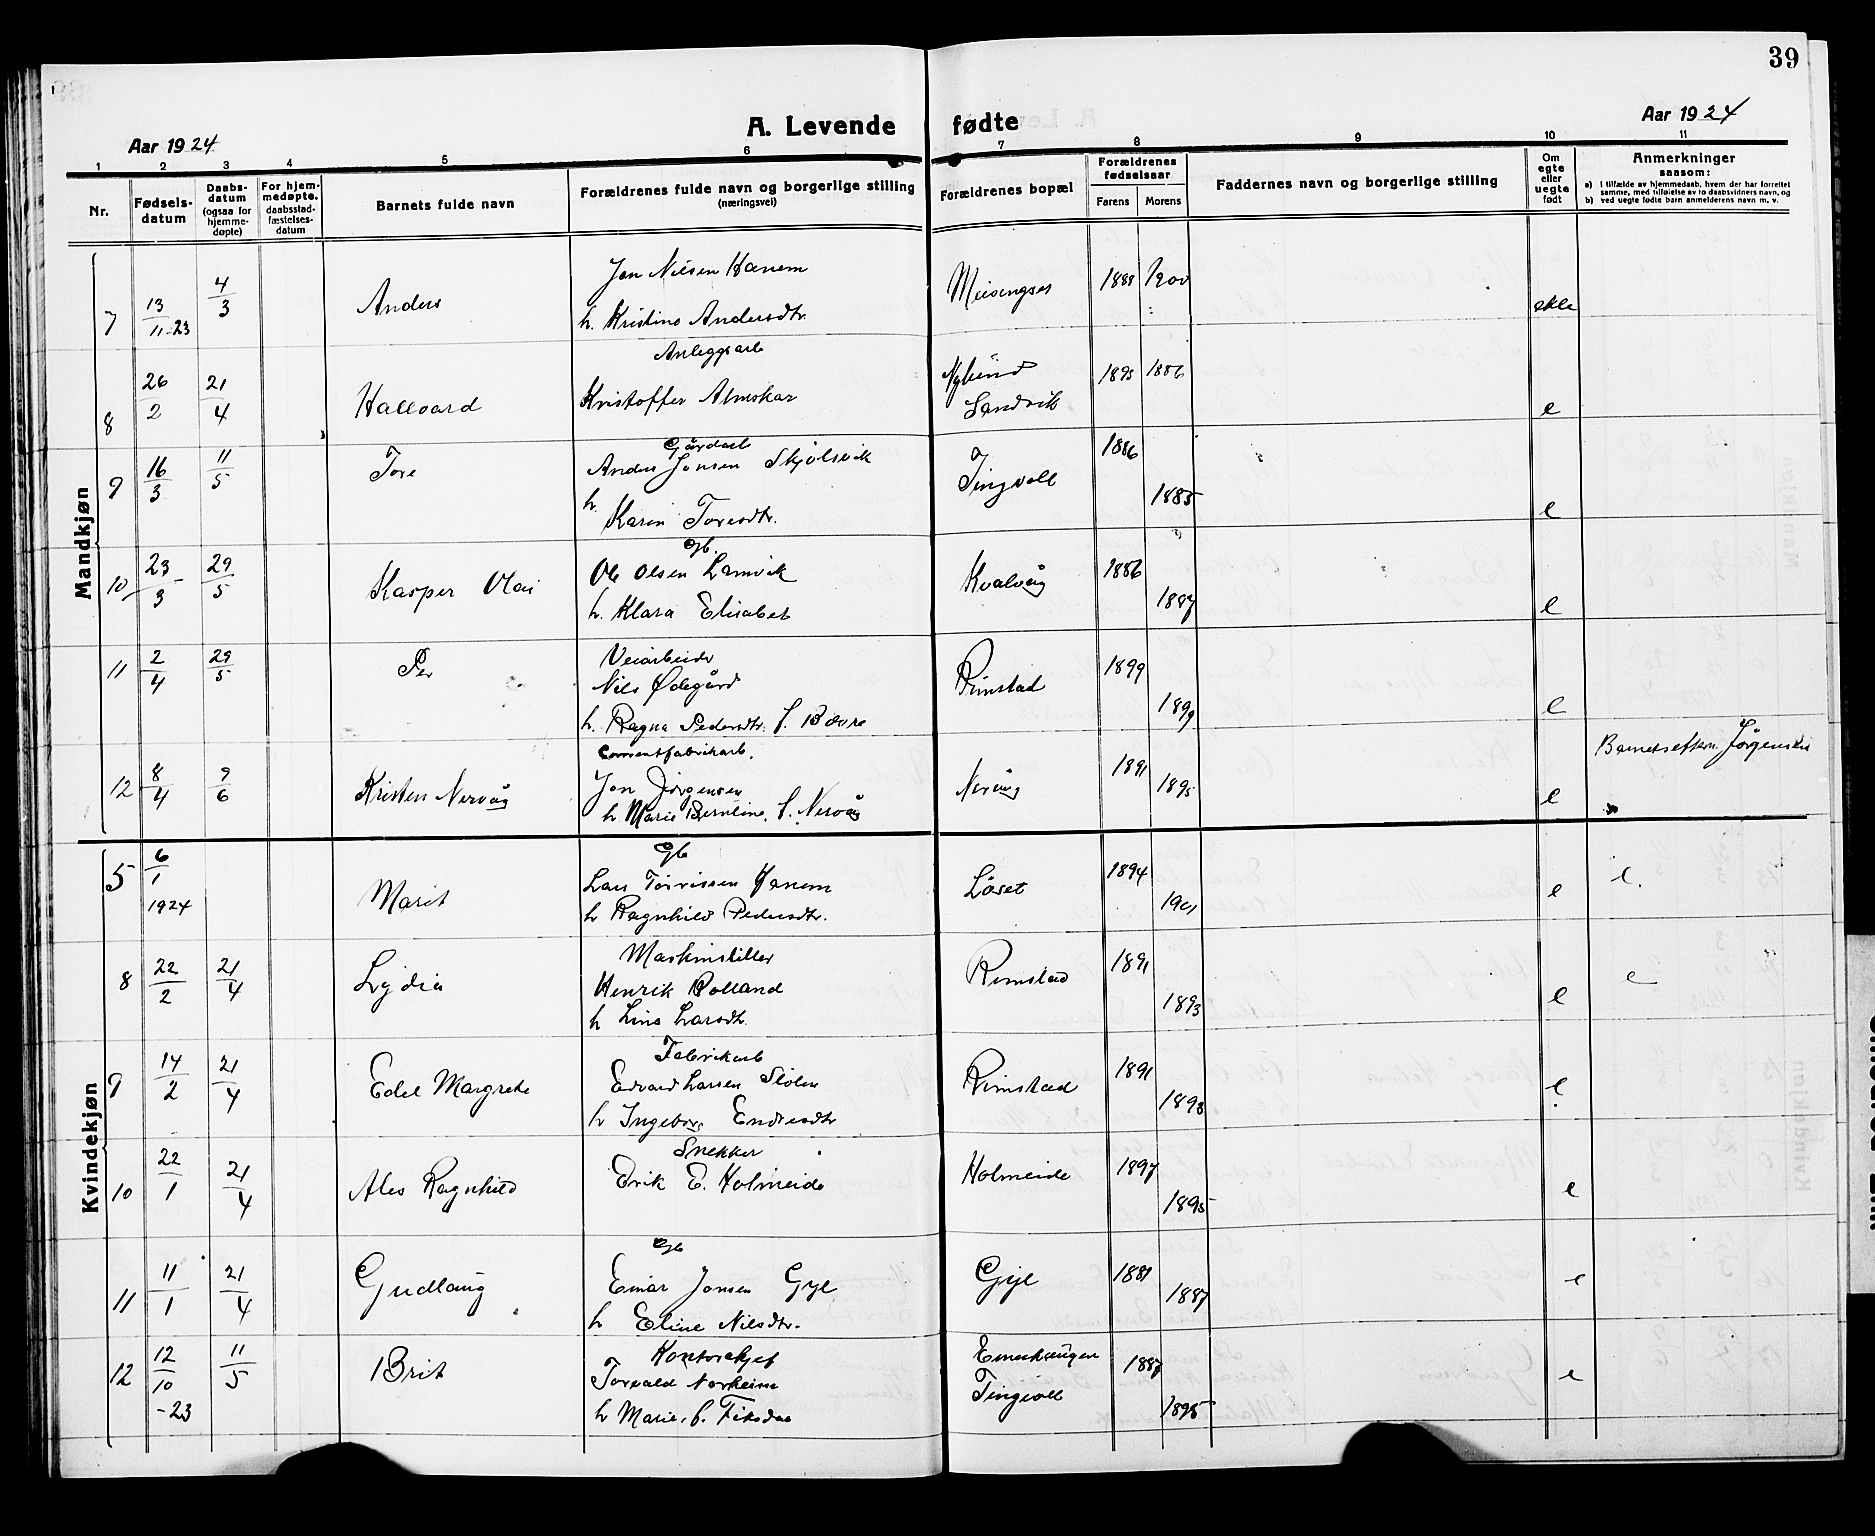 39
A. Levende fødte
Aar 1924
Aar 1924
1 2 3 4 5 6 7 8 9 10 11
Nr.
Fødsels-
datum
Daabs-
datum
(ogsaa for
hjemme-
døpte)
For hjem-
medøpte.
daabsstad-
fæstelses-
datum
Barnets fulde navn
Forældrenes fulde navn og borgerlige stilling
(næringsvei)
Forældrenes bopæl
Forældrenes
fødselsaar
Farens Morens
Faddernes navn og borgerlige stilling
Om
egte
eller
uegte
født
Anmerkninger
saasom:
a) i tilfælde av hjemmedaab, hvem der har forrettet
samme, med tilføielse av to daabsvidners navn, og
b) ved uegte fødte barn anmelderens navn m. v.
Mandkjøn
7 13/11-23 4/3 Anders
Jon Nilsen Hanem
h. Kristine Andersdtr.
Meisengset 1888 1900 ekte
8 26/2 21/4 Hallvard
Anleggsarb
Kristoffer Almskar
Nylund
Sandvik 1895 1886 e
9 16/3 11/5 Tore
Gårdarb
Anders Jonsen Skjølsvik
h. Karen Toresdtr.
Tingvoll 1886 1885 e
10 23/3 29/5 Kasper Olai
Gb.
Ole Olsen Lamvik
h. Klara Elisabet
Kvalvåg 1886 1887 e
11 2/4 29/5 Per
Veiarbeider
Nils Ødegård
h. Ragna Pedersdtr. f. Bøvre
Rimstad 1899 1899 e
12 8/4 9/6 Kristen Nervåg
Cementfabrikarb.
Jon Jørgensen
h. Marie Berntine, f. Nervåg
Nervåg 1891 1895 e
Barnets eftern. Jørgensen
Kvindekjøn
5 6/1 1924 Marit
Gb
Lars Torrissen Hanem
h Ragnhild Pedersdtr.
Löset 1894 1901 e e.
8 22/2 21/4 Lydia
Maskinstiller
Henrik Bolland
h Lina Larsdtr.
Rimstad 1891 1893 e e
9 14/2 21/4 Edel Margrete
Fabrikarb
Edvard Larsen Stölen
h Ingeborg Endresdtr
Rimstad 1891 1893 e
10 22/1 21/4 Ales Ragnhild
Snekker
Erik E. Holmeide
Holmeide 1897 1895 e
11 11/1 21/4 Gudlaug
Gb
Einar Jonsen Gyl
h Eline Nilsdtr.
Gyl 1881 1887 e
12 12/10-23 11/5 Brit
Kontorchef
Torvald Norheim
h Marie, f. Fiksdal
Einerhaugen
Tingvoll 1887 1895 e